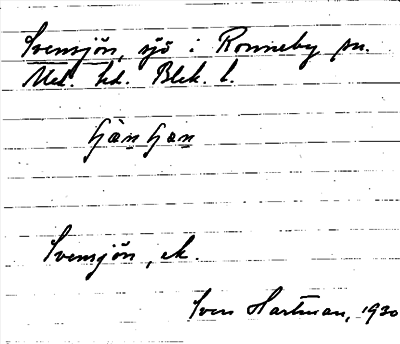 Svensjön, sjö i Ronneby sn.
Med. hd. Blek. l.
Svensjön, ek.
Sven Hartman, 1930